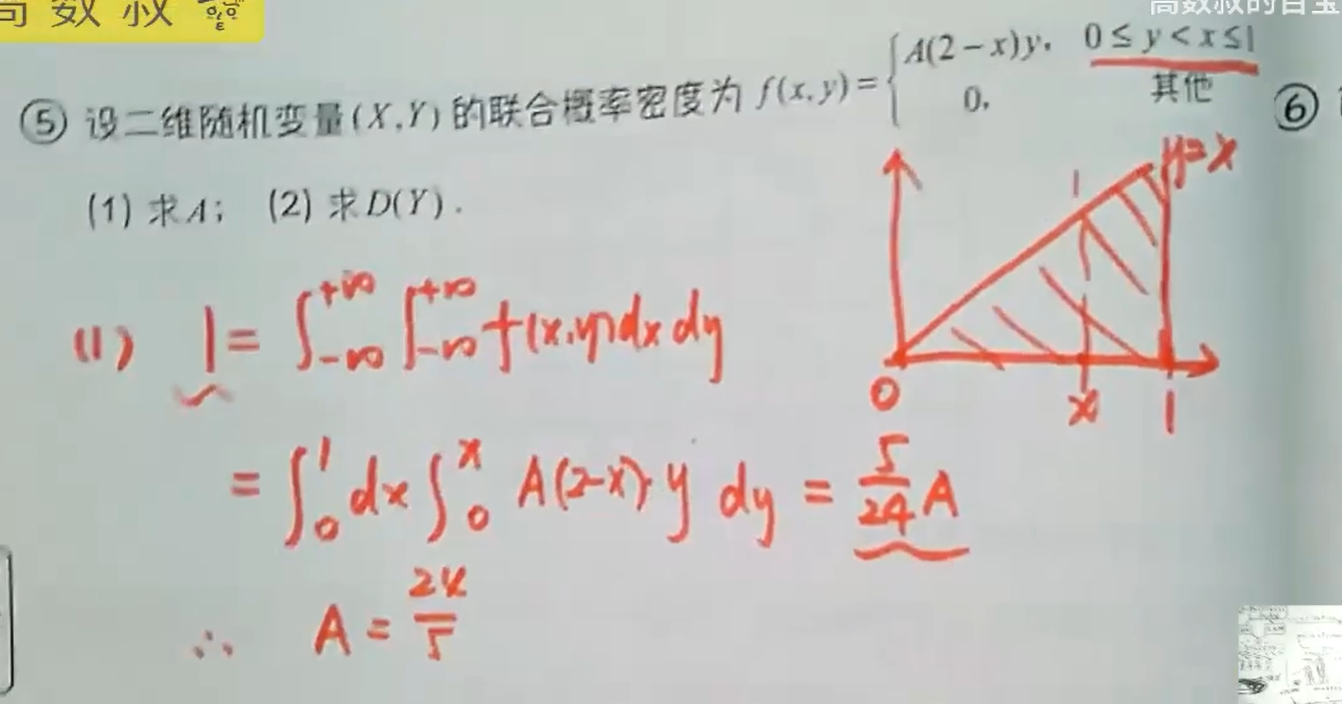 高数叔
高数叔的百宝
⑤ 设二维随机变量(X,Y)的联合概率密度为 f(x,y)={A(2-x)y, 0≤y<x≤1
0, 其他
⑥
(1) 求A; (2) 求D(Y).
y=x
1
0 x 1
(1) 1=∫_{-∞}^{+∞}∫_{-∞}^{+∞}f(x,y)dxdy
=∫_0^1dx∫_0^x A(2-x)·y dy=5/24 A
∴ A=24/5